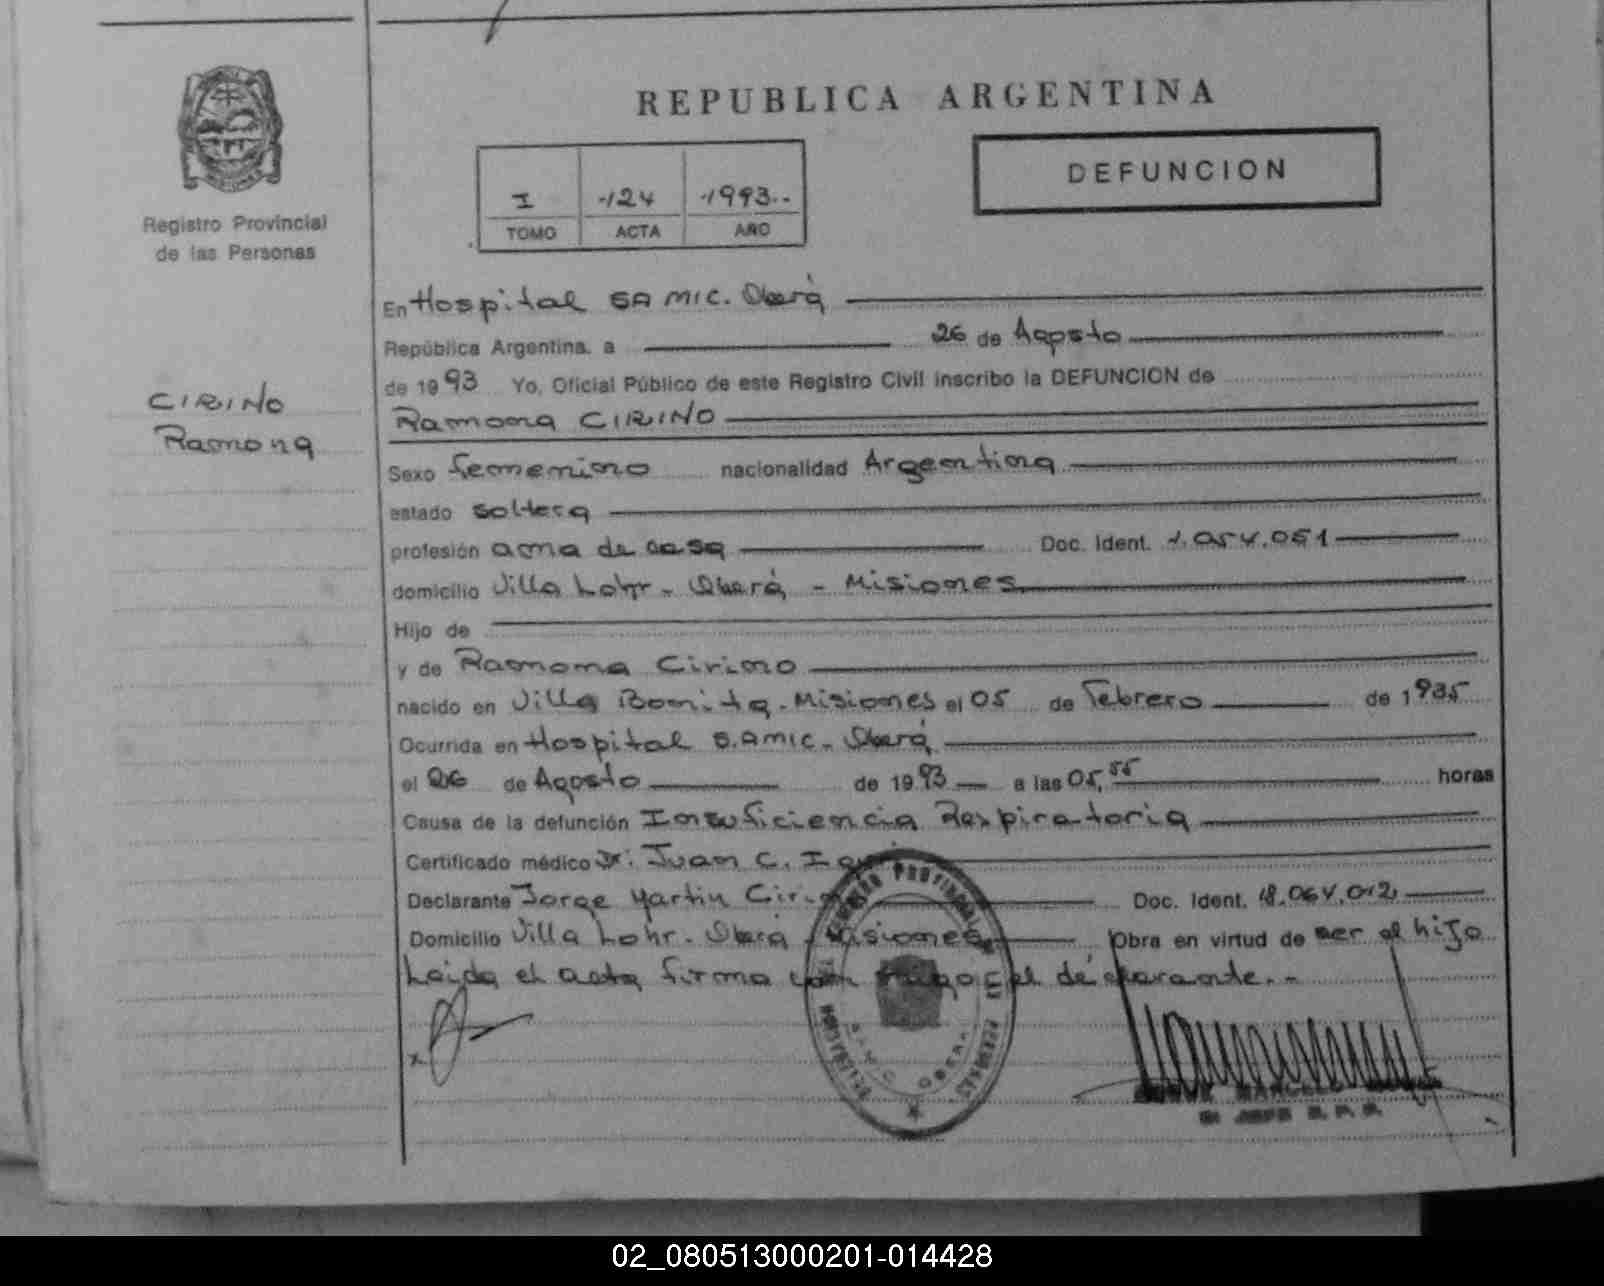 REPUBLICA ARGENTINA
DEFUNCION
I -124 -1993.-
TOMO ACTA AÑO
MISIONES
Registro Provincial
de las Personas
CIRINO
Ramona
En Hospital SAMIC. Oberá
República Argentina, a 26 de Agosto
de 1993 Yo, Oficial Público de este Registro Civil inscribo la DEFUNCION de
Ramona CIRINO
Sexo femenino nacionalidad Argentina
estado soltera
profesión ama de casa Doc. Ident.
domicilio Villa Lohr - Oberá - Misiones
Hijo de
y de Ramona Cirino
nacido en Villa Bonita - Misiones el 05 de Febrero de 1935
Ocurrida en Hospital S.AMIC. Oberá
el 26 de Agosto de 1993 a las 05,55 horas
Causa de la defunción Insuficiencia Respiratoria
Certificado médico Dr. Juan C.
Declarante Jorge Martin Cirino Doc. Ident. 18.064.012
Domicilio Villa Lohr. Oberá - Misiones Obra en virtud de ser el hijo
Leida el acta firma con migo el declarante.-
02_080513000201-014428